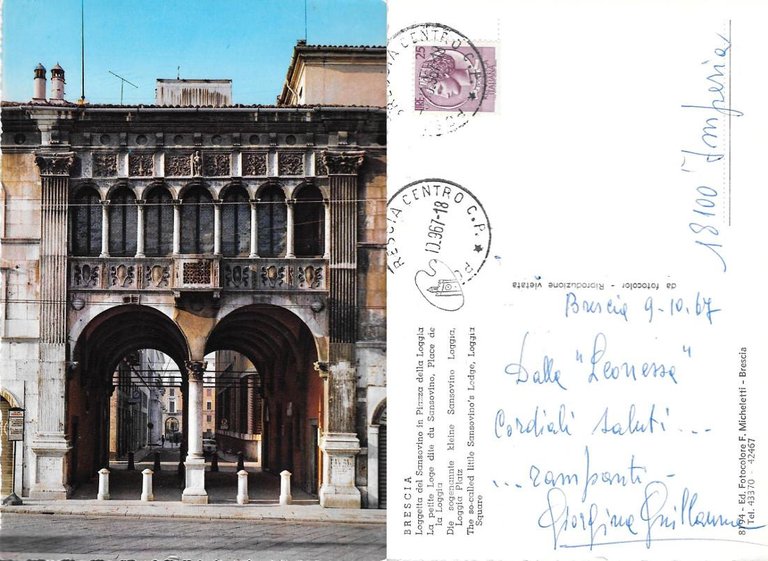 BRESCIA CENTRO C.P.
LIRE 25
ITALIANE
BRESCIA CENTRO C.P.
10.967-18
18100 Imperia
da fotocolor - Riproduzione vietata
BRESCIA
Loggetta del Sansovino in Piazza della Loggia
La petite Loge dite du Sansovino, Place de
la Loggia
Die sogenannte kleine Sansovino Loggia,
Loggia Platz
The so-called little Sansovino's Lodge, Loggia
Square
Brescia 9.10.67
Dalla "Leonessa"
Cordiali saluti...
...rampanti -
Giorgina Guillaume
81/94 - Ed. Fotocolore F. Micheletti - Brescia
Tel. 43370 - 42467